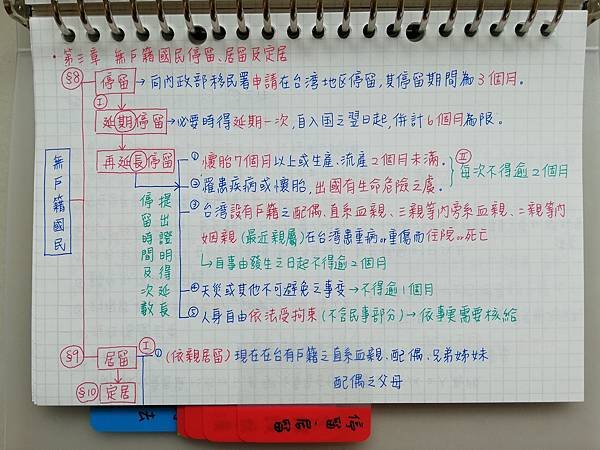 第三章 無戶籍國民停留、居留及定居
§8 停留 → 向內政部移民署申請在台湾地区停留,其停留期間為3個月。
Ⅰ
延期停留 → 必要時得延期一次,自入国之翌日起,併計6個月為限。
再延長停留 ① 懷胎7個月以上或生產、流產2個月未滿。
② 罹患疾病或懷胎,出國有生命危險之虞。
Ⅱ 每次不得逾2個月
③ 台湾設有戶籍之配偶、直系血親、三親等內旁系血親、二親等內
姻親(最近親屬)在台湾患重病or重傷而住院or死亡
↳ 自事由發生之日起不得逾2個月
④ 天災或其他不可避免之事变 → 不得逾1個月
⑤ 人身自由依法受拘束(不含民事部分) → 依事实需要核給
提出證明得延長
停留時間及次數
無戶籍國民
§9 居留 Ⅰ ① (依親居留) 現在在台有戶籍之直系血親、配偶、兄弟姊妹
配偶之父母
§10 定居
法
停留、居留